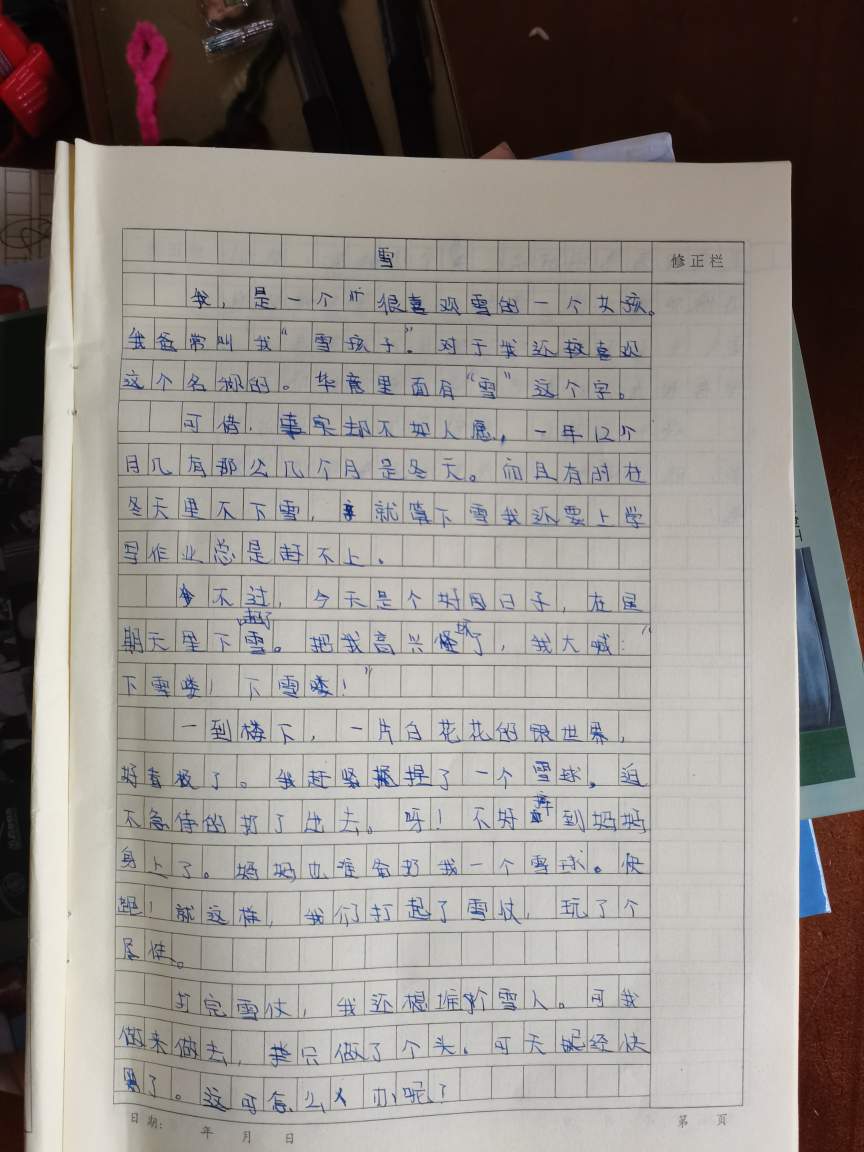 雪
修正栏
我，是一个很喜欢雪的一个女孩。
我爸常叫我“雪孩子”。对于我还挺喜欢
这个名称的。毕竟里面有“雪”这个字。
可惜，事实却不如人愿，一年12个
月几有那么几个月是冬天。而且有时在
冬天里不下雪，就算下雪我还要上学
写作业总是赶不上。
不过，今天是个好日子，在星
期天里下起了雪。把我高兴坏了，我大喊：“
下雪喽！下雪喽！”
一到楼下，一片白花花的银世界，
好看极了。我赶紧捏了一个雪球，迫
不急待的打了出去。呀！不好 到妈妈
身上了。妈妈也准备好我一个雪球。快
跑！就这样，我们打起了雪仗，玩了个
尽性。
打完雪仗，我还想堆个雪人。可我
做来做去，只做了个头。可天 经快
黑了。这可怎么办呢！
日期： 年 月 日
第 页